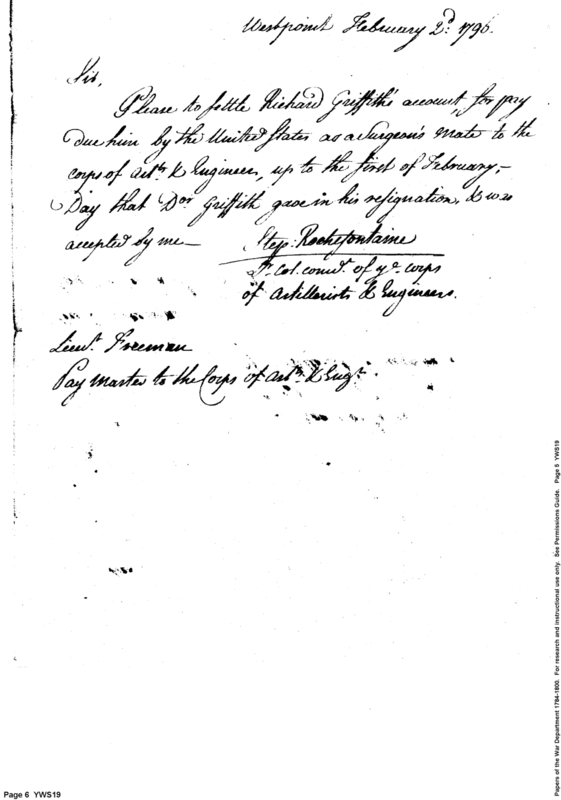 Westpoint February 2d. 1796.
Sir,
Please to settle Richard Griffith's account, for pay
due him by the United States as a Surgeon's Mate to the
corps of Arts. & Engineers, up to the first of February,-
Day that Dor Griffith gave in his resignation, & was
accepted by me-
Step. Rochefontaine
Lt. Col. comdt. of ye. corps
of Artillerists & Engineers.
Lieut. Freeman
Pay Master to the Corps of Arts. & Engrs.
Page 6 YWS19
Papers of the War Department 1784-1800. For research and instructional use only. See Permissions Guide. Page 5 YWS19